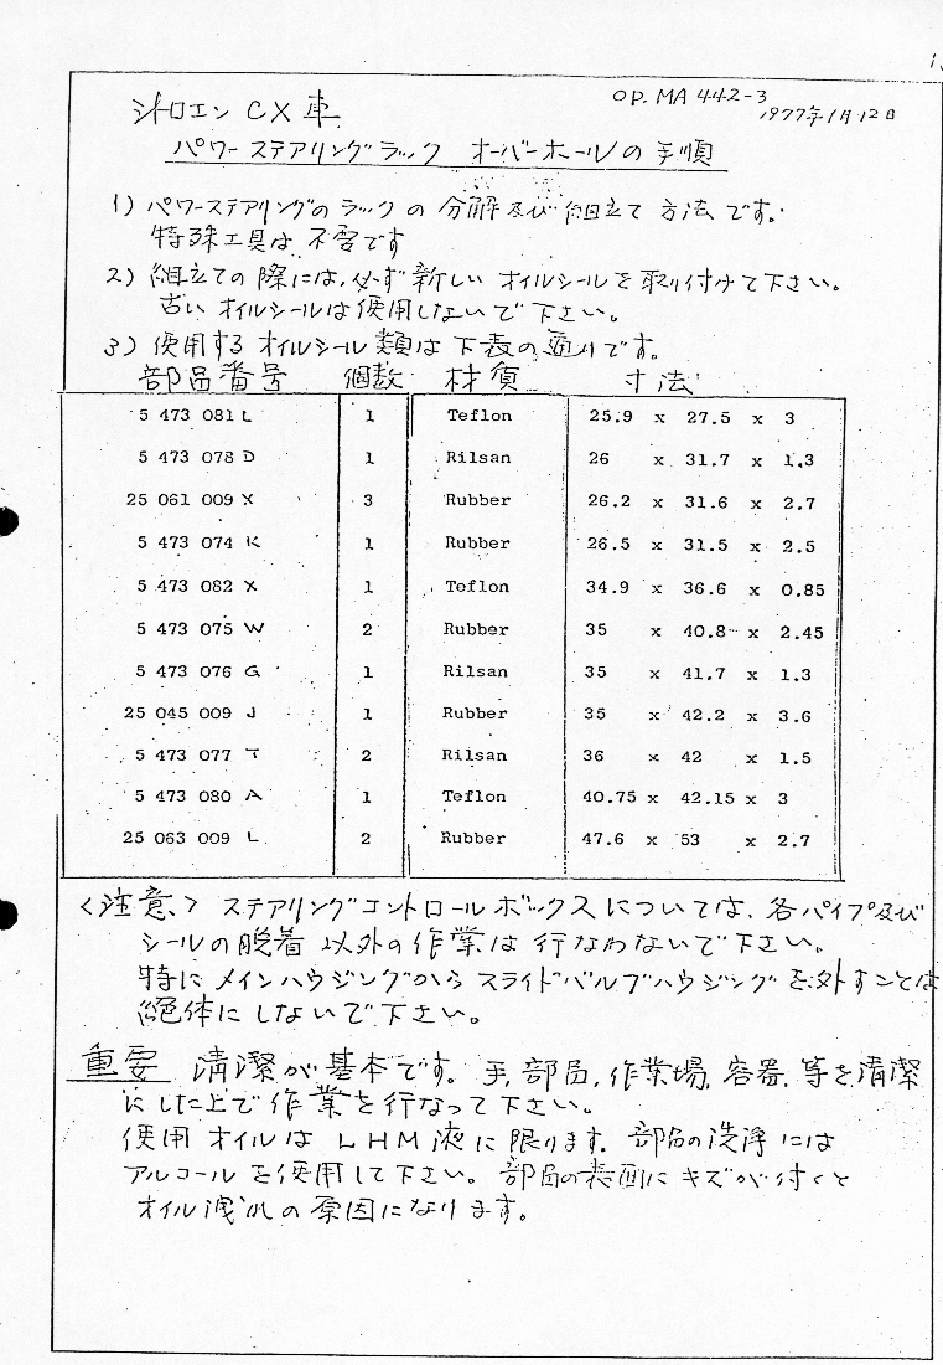 1.
シトロエン CX 車
OP. MA 442-3
1977年1月12日
パワーステアリングラック オーバーホールの手順
1) パワーステアリングのラックの分解及び組立て方法です.
特殊工具は不要です
2) 組立ての際には,必ず新しいオイルシールを取り付けて下さい。
古いオイルシールは使用しないで下さい。
3) 使用するオイルシール類は下表の通りです。
部品番号 個数 材質 寸法
5 473 081 L 1 Teflon 25.9 x 27.5 x 3
5 473 078 D 1 Rilsan 26 x 31.7 x 1.3
25 061 009 X 3 Rubber 26.2 x 31.6 x 2.7
5 473 074 K 1 Rubber 26.5 x 31.5 x 2.5
5 473 082 X 1 Teflon 34.9 x 36.6 x 0.85
5 473 075 W 2 Rubber 35 x 40.8 x 2.45
5 473 076 G 1 Rilsan 35 x 41.7 x 1.3
25 045 009 J 1 Rubber 35 x 42.2 x 3.6
5 473 077 2 Rilsan 36 x 42 x 1.5
5 473 080 A 1 Teflon 40.75 x 42.15 x 3
25 063 009 L 2 Rubber 47.6 x 53 x 2.7
<注意> ステアリングコントロールボックスについては、各パイプ及び
シールの脱着以外の作業は行なわないで下さい。
特にメインハウジングからスライドバルブハウジングを外すことは
絶体にしないで下さい。
重要 清潔が基本です。手,部品,作業場,容器,等を清潔
にした上で作業を行なって下さい。
使用オイルはLHM液に限ります.部品の洗浄には
アルコールを使用して下さい。部品の表面にキズが付くと
オイル洩れの原因になります。